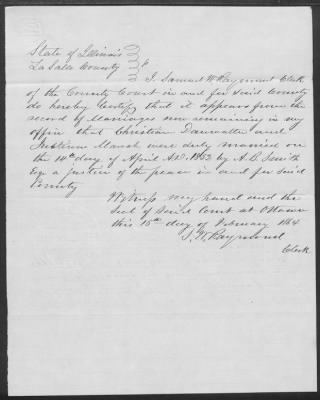 State of Illinois
La Salle County
I. Samuel W. Raymond Clerk
of the County Court in and for said County
do hereby Certify that it appears from the
record of Marriages now remaining in my
office that Christian and
March were duly married on
the 14th day of April A.D. 1853 by A. B. Smith
Esq a justice of the peace in and for said
County
Witness my hand and the
Seal of said Court at Ottawa
this 15th day of February 1864
S. W. Raymond
Clerk